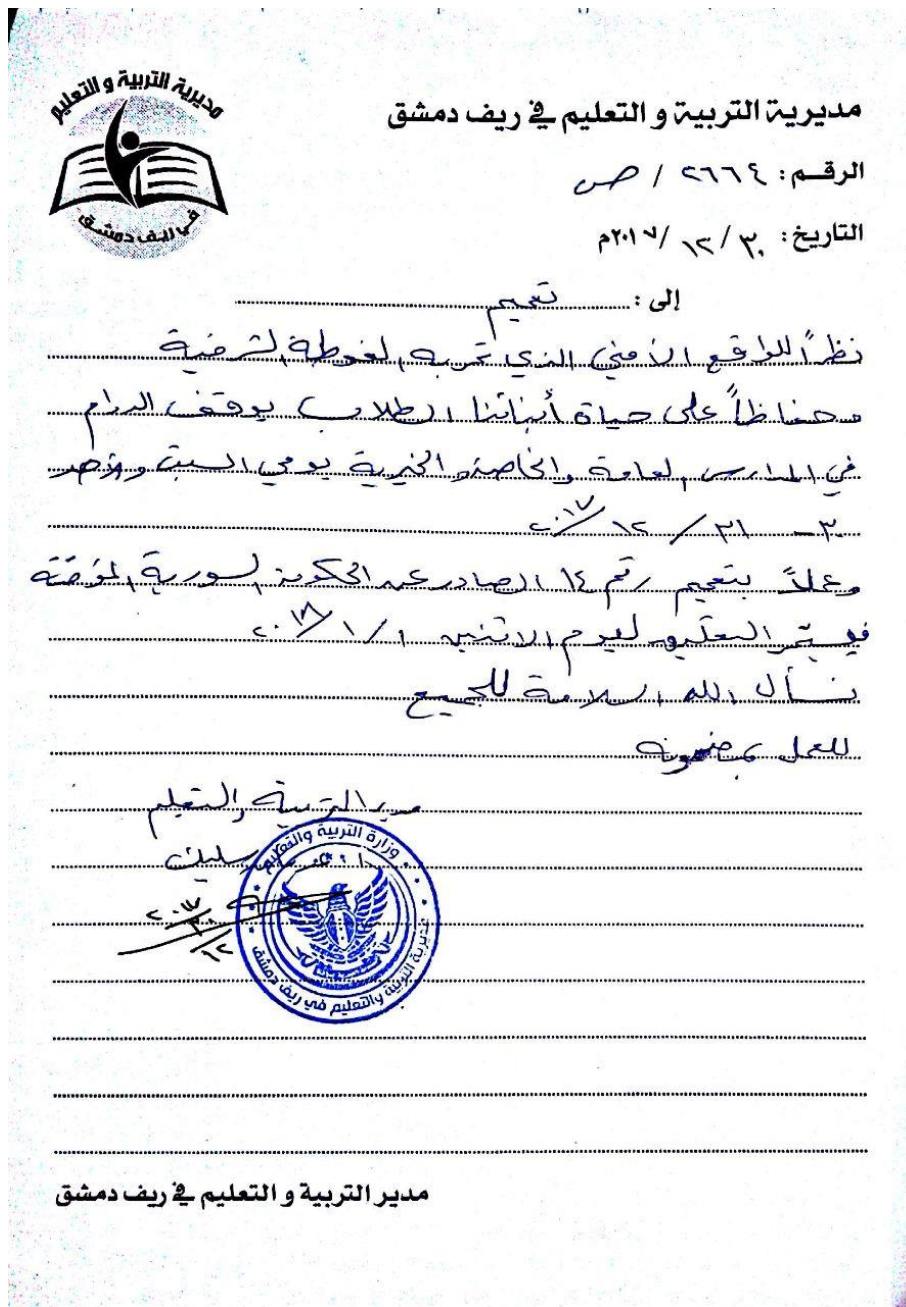 مديرية التربية و التعليم
في ريف دمشق
مديرية التربية و التعليم في ريف دمشق
الرقم: ٢٦٦٤ / ص
التاريخ: ٣٠ / ١٢ / ٢٠١٧م
إلى: تعميم
نظراً للواقع الأمني الذي تمر به الغوطة الشرقية
وحفاظاً على حياة أبنائنا الطلاب يوقف الدوام
في المدارس العامة والخاصة والخيرية يومي السبت والأحد
٣٠ - ٣١ / ١٢ / ٢٠١٧
وعملاً بتعميم رقم ١٤ الصادر عن الحكومة السورية المؤقتة
فيستمر التعليق ليوم الاثنين ١ / ١ / ٢٠١٨
نسأل الله السلامة للجميع
للعمل بمضمونه
مدير التربية والتعليم
سليك
وزارة التربية والتعليم
مديرية التربية والتعليم في ريف دمشق
مدير التربية و التعليم في ريف دمشق